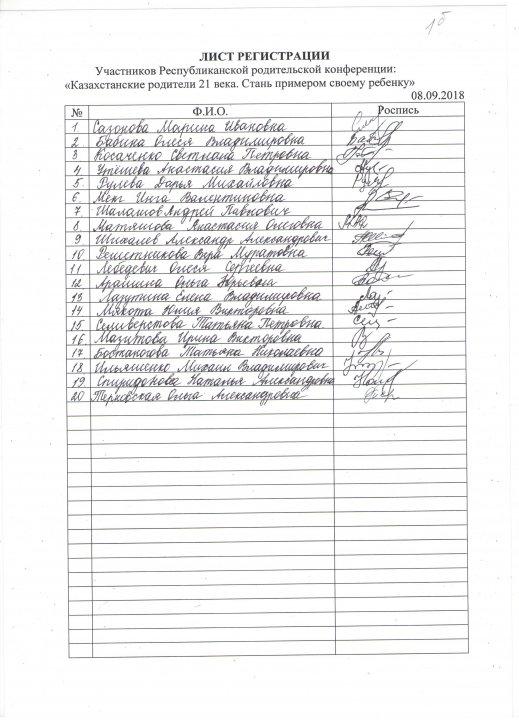 15
ЛИСТ РЕГИСТРАЦИИ
Участников Республиканской родительской конференции:
«Казахстанские родители 21 века. Стань примером своему ребенку»
08.09.2018
№ Ф.И.О. Роспись
1 Сазонова Марина Ивановна
2 Бабина Олеся Владимировна
3 Косаченко Светлана Петровна
4 Утешева Анастасия Владимировна
5. Рулева Дарья Михайловна
6. Менг Инга Валентиновна
7 Шаламов Андрей Павлович
8. Матяшова Анастасия Олеговна
9 Шихалев Александр Александрович
10. Решетникова Вера Муратовна
11 Лебедевич Олеся Сергеевна
12 Арашина Ольга Юрьевна
13 Лазуткина Елена Владимировна
14 Мякота Юлия Викторовна
15 Селиверстова Татьяна Петровна
16. Мазитова Ирина Викторовна
17. Татьяна Николаевна
18 Ильяшенко Михаил Владимирович
19. Спиридонова Наталья Александровна
20 Терновская Ольга Александровна